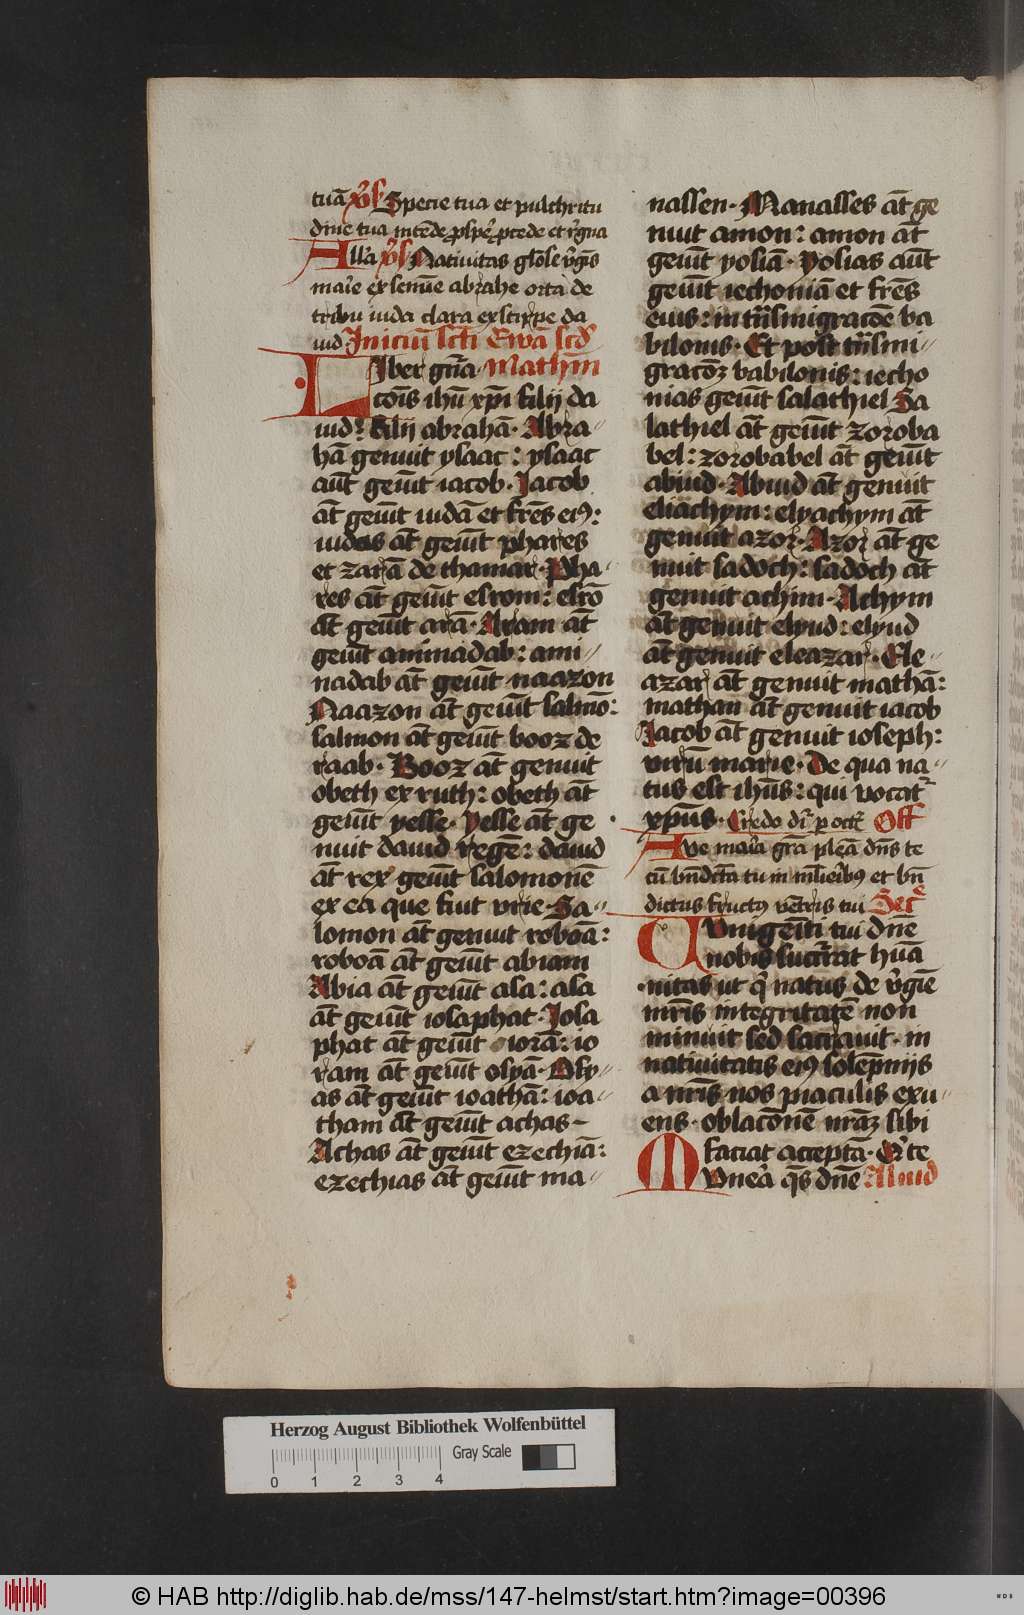 tuā v̉s Specie tua et pulchritu
dine tua intēde ꝓspeꝛ̉ ꝓcede et r̉gna
Allā v̉s Natiuitas gl̄ose v̉gīs
marīe ex semīe abrahe orta de
tribu iuda clara ex stirpe da
uid Iniciū sc̄ti Ewā scd̄
Liber gn̄a· Mathm̄
cōis ihū xp̄i filij da
uid: filij abrahā· Abra-
hā genuit ysaac: ysaac
aūt geuīt iacob· Jacob
āt geuīt iudā et fr̄es eiꝰ:
iudas āt geuīt phares
et zarā de thamar· Pha-
res āt geuīt esrom: esrō
āt geuīt arā· Aram āt
geuīt aminadab: ami-
nadab āt geuīt naazon
Naazon āt geuīt salmō:
salmon āt geuīt booz de
raab· Booz āt genuit
obeth ex ruth: obeth āt
geuīt yesse· Yesse āt ge
nuit dauid regē: dauid
āt rex geuīt salomonē
ex ea que fuit vrie· Sa-
lomon āt genuit roboā:
roboā āt geuīt abiam
Abia āt geuīt asa: asa
āt geuīt iosaphat· Josa
phat āt geuīt iorā: io
ram āt geuīt osyā· Osy-
as āt geuīt ioathā: ioa-
tham āt geuīt achas-
Achas āt geuīt ezechiā:
ezechias āt geuīt ma-
nassen· Manasses āt ge
nuit amon: amon āt
geuīt yosiā· Yosias aūt
geuīt iechoniā et fr̄es
eius: in trāsmigracōe ba
bilonis· Et post trāsmi-
gracōꝫ babilonis: iecho
nias geuīt salathiel Sa
lathiel āt geuīt zoroba
bel: zorobabel āt geuīt
abiud· Abiud āt genuit
eliachym: elyachym āt
genuit azor· Azor āt ge
nuit sadoch: sadoch āt
genuit achim· Achym
āt genuit elyud: elyud
āt genuit eleazar· Ele-
azar āt genuit mathā:
mathan āt genuit iacob
Jacob āt genuit ioseph:
virū marie· De qua na-
tus est ihūs: qui vocat̉
xp̄us· Credo dr̄ p oct̄ Off
Aue maīa grā plēa dn̄s te
cū bn̄dc̄ta tu in ml̄ieribꝰ et bn̄
dictus fructꝰ vētris tui Sec̄
Vnigeīti tui dn̄e
nobis succ̄rat huā
nitas ut q̉ natus de v̉gīe
mr̄is integritatē non
minuit sed sacrauit· in
natiuitatis eiꝰ solēpnijs
a nr̄is nos piaculis exu-
ens· oblacōnē nrāꝫ sibi
faciat acceptā· Q̉ te
Mvnēa q̄s dn̄e Aliud
Herzog August Bibliothek Wolfenbüttel
Gray Scale
0 1 2 3 4
© HAB http://diglib.hab.de/mss/147-helmst/start.htm?image=00396